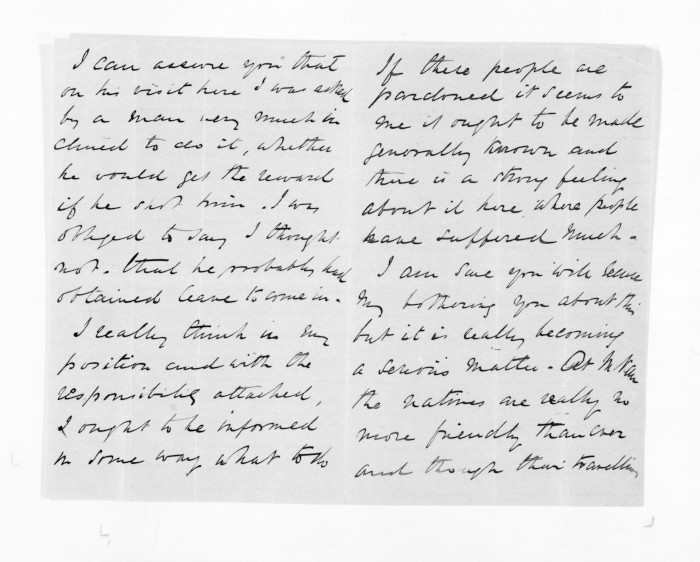 I can assure you that
on his visit here I was asked
by a man very much in
clined to do it, whether
he would get the reward
if he shot him. I was
obliged to say I thought
not. that he probably had
obtained leave to come in -
I really think in my
position and with the
responsibility attached,
I ought to be informed
in some way what to do
If these people are
pardoned it seems to
me it ought to be made
generally known and
there is a strong feeling
about it here, where people
have suffered much -
I am sure you will excuse
my bothering you about this
but it is really becoming
a serious matter - At
the natives are really no
more friendly than ever
and though their travelling